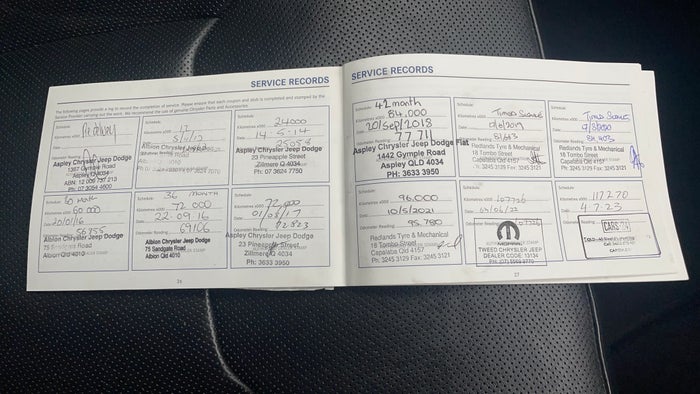 SERVICE RECORDS
The following pages provide a log to record the completion of service. Please ensure that each coupon and stub is completed and stamped by the
Service Provider carrying out the work. We recommend the use of genuine Chrysler Parts and Accessories.
Schedule:
Pe delivery
Kilometres x000
Date
Aspley Chrysler Jeep Dodge
1387 Gympie Road
Aspley Q 4034
Ph: 07 3054 4600
Schedule:
Kilometres x000 17
Date 5/4/12
Odometer Reading
Schedule:
24000
Kilometres x000
Date 14-5-14
25059
Aspley Chrysler Jeep Dodge
23 Pineapple Street
Zillmere Q 4034
Ph: 07 3624 7750
Schedule:
60
Kilometres x000 60 000
Date 20/01/16
56755
Albion Chrysler Jeep Dodge
75 Sandgate Road
Albion Qld 4010
Schedule:
36 MONTH
Kilometres x000 72 000
Date 22.09.16
Odometer Reading 69106
Albion Chrysler Jeep Dodge
75 Sandgate Road
Albion Qld 4010
Schedule:
Kilometres x000 72,000
Date 01/08/17
72823
Aspley Chrysler Jeep Dodge
23 Pineapple Street
Zillmere Q 4034
Ph: 3633 3950
SERVICE RECORDS
Schedule: 42 month
Kilometres x000 84,000
Date 20/Sep/2018
Odometer Reading 77 711
Aspley Chrysler Jeep Dodge Fiat
1442 Gympie Road
Aspley QLD 4034
PH: 3633 3950
Schedule:
Kilometres x000
Date
Odometer Reading 81643
Redlands Tyre & Mechanical
18 Tombo Street
Capalaba Qld 4157
Ph: 3245 3129 Fax: 3245 3121
Schedule:
Kilometres x000
Date
Odometer Reading 84403
Redlands Tyre & Mechanical
18 Tombo Street
Capalaba Qld 4157
Ph: 3245 3129 Fax: 3245 3121
Schedule:
Kilometres x000 96.000
Date 10/5/2021
Odometer Reading 95,780
Redlands Tyre & Mechanical
18 Tombo Street
Capalaba Qld 4157
Ph: 3245 3129 Fax: 3245 3121
Schedule:
Kilometres x000 107726
Date 09/06/22
107726
TWEED CHRYSLER JEEP
DEALER CODE: 13134
Schedule:
Kilometres x000 117270
Date 4.7.23
CARS 24
26
27